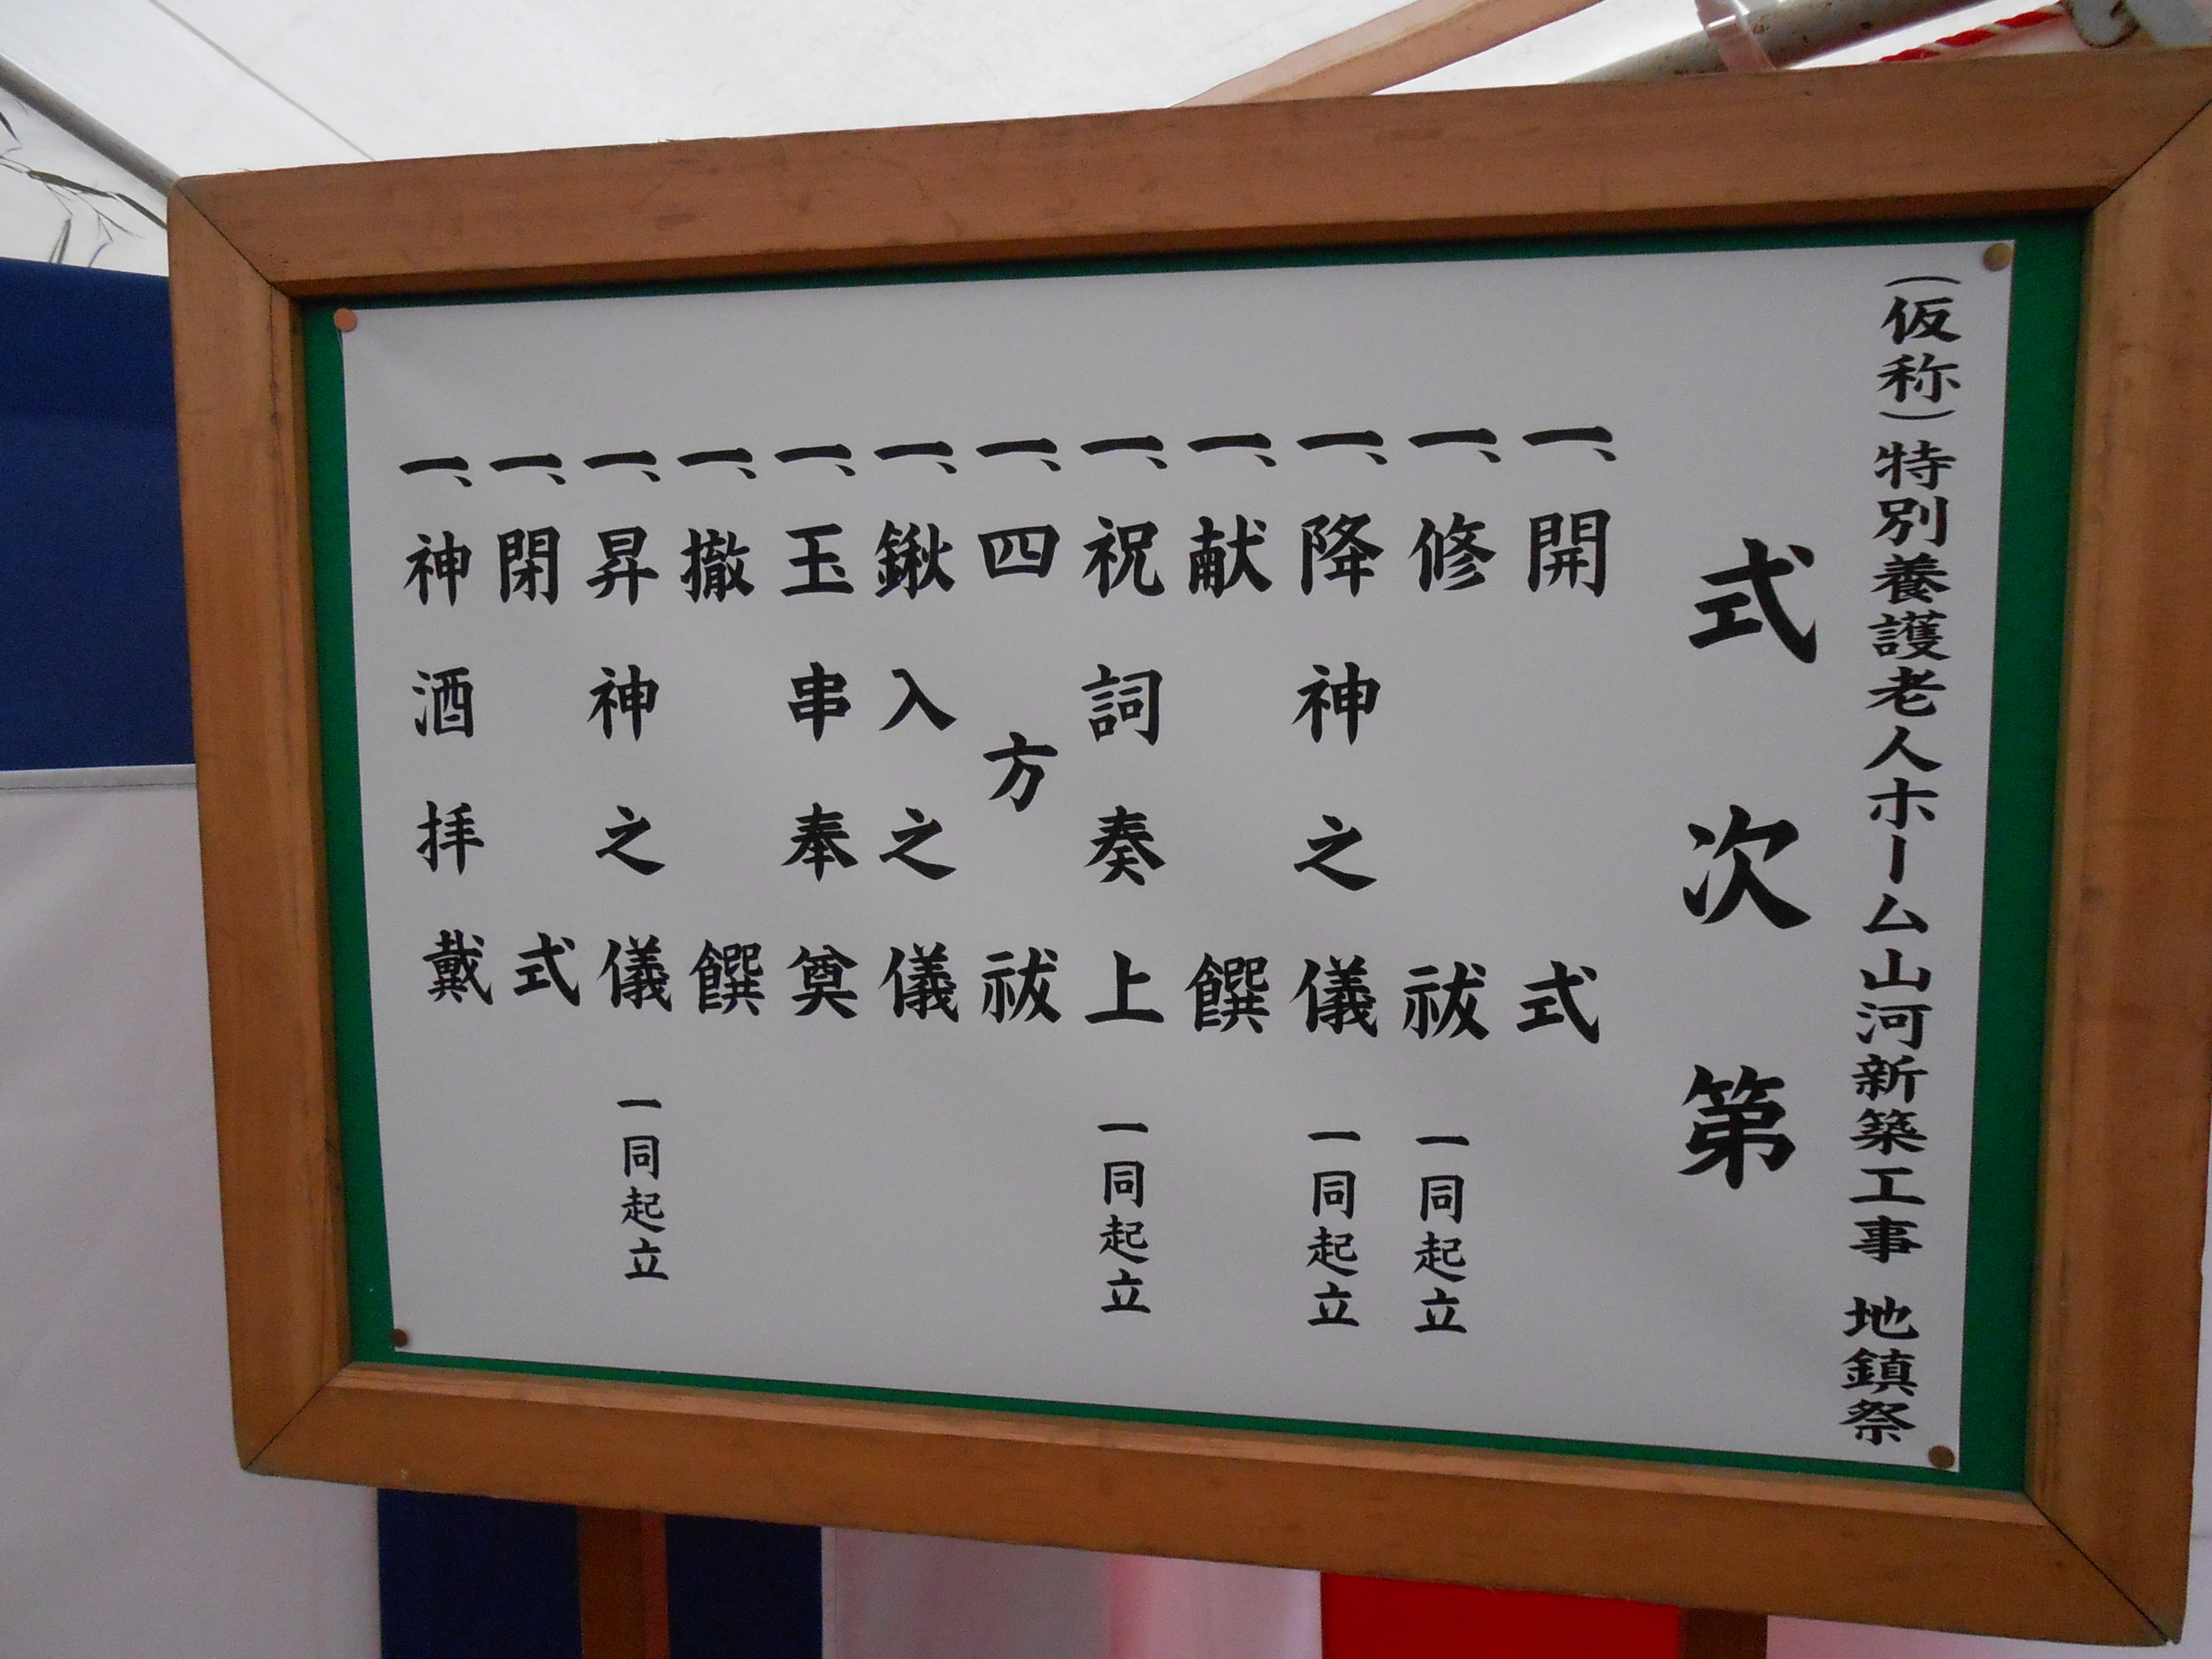 （仮称）特別養護老人ホーム山河新築工事 地鎮祭
式次第
一、開式
一、修祓 一同起立
一、降神之儀 一同起立
一、献饌
一、祝詞奏上 一同起立
一、四方祓
一、鍬入之儀
一、玉串奉奠
一、撤饌
一、昇神之儀 一同起立
一、閉式
一、神酒拝戴